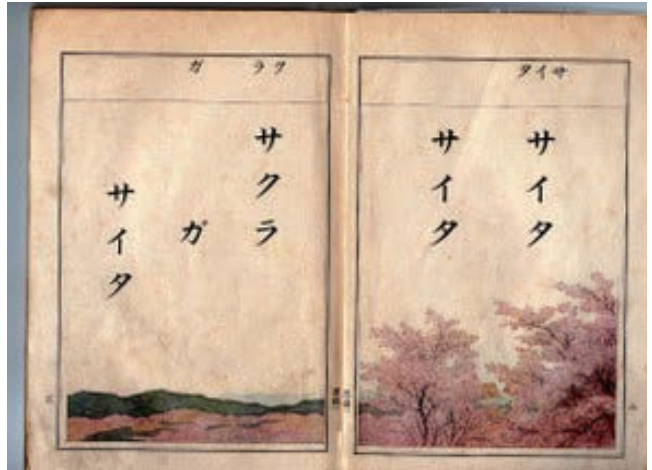 サイタ
サイタ
サイタ
クラ
ガ
サクラ
ガ
サイタ